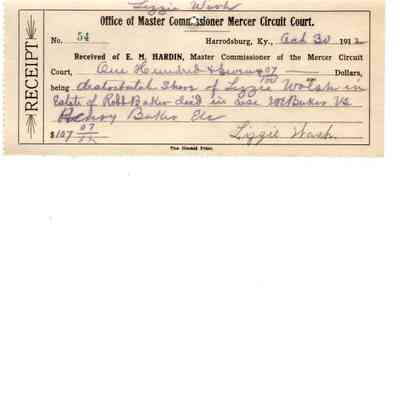 Lizzie Wash
Office of Master Commissioner Mercer Circuit Court.
No. 54 Harrodsburg, Ky., 30 1912
Received of E. M. HARDIN, Master Commissioner of the Mercer Circuit
Court, One Hundred & Seven 07/100 Dollars,
being distributal Share of Lizzie Walsh in
Estate of Robt Baker dec'd in Case Baker Vs
Henry Baker Etc
$107 07/100 Lizzie Wash.
RECEIPT
The Herald Print.